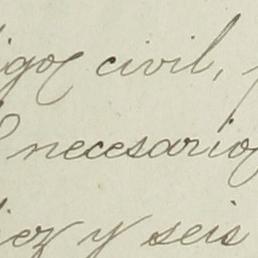 igo civil,
necesario
iez y seis